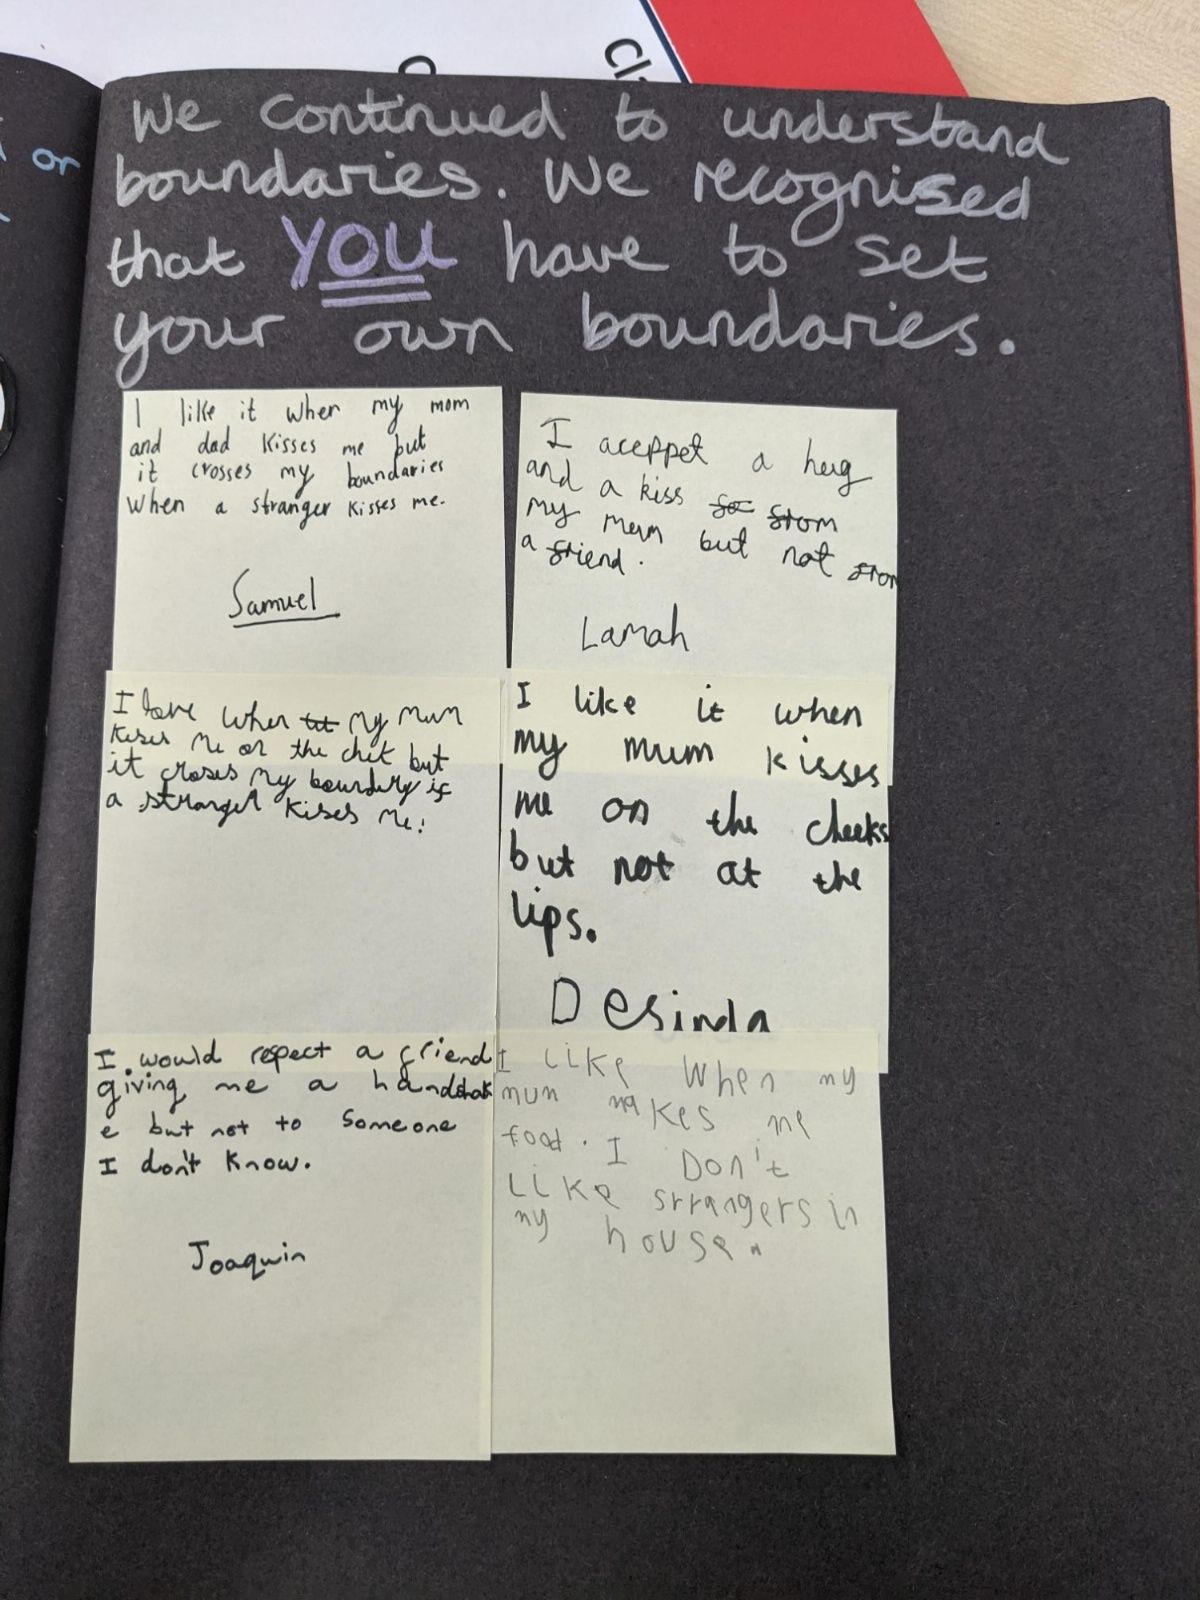 or
We continued to understand
boundaries. We recognised
that YOU have to set
your own boundaries.
I like it when my mom
and dad kisses me but
it crosses my boundaries
When a stranger kisses me.
Samuel
I aceppet a hug
and a kiss from
my mum but not from
a friend.
Lamah
I love when my mum
kises me on the chek but
it croses my boundury if
a stranger kises me!
I like it when
my mum kisses
me on the cheeks
but not at the
lips.
Desinda
I would repect a friend
giving me a handshak
e but not to someone
I don't know.
Joaquin
I Like When my
mum makes me
food. I Don't
Like strangers in
my house.